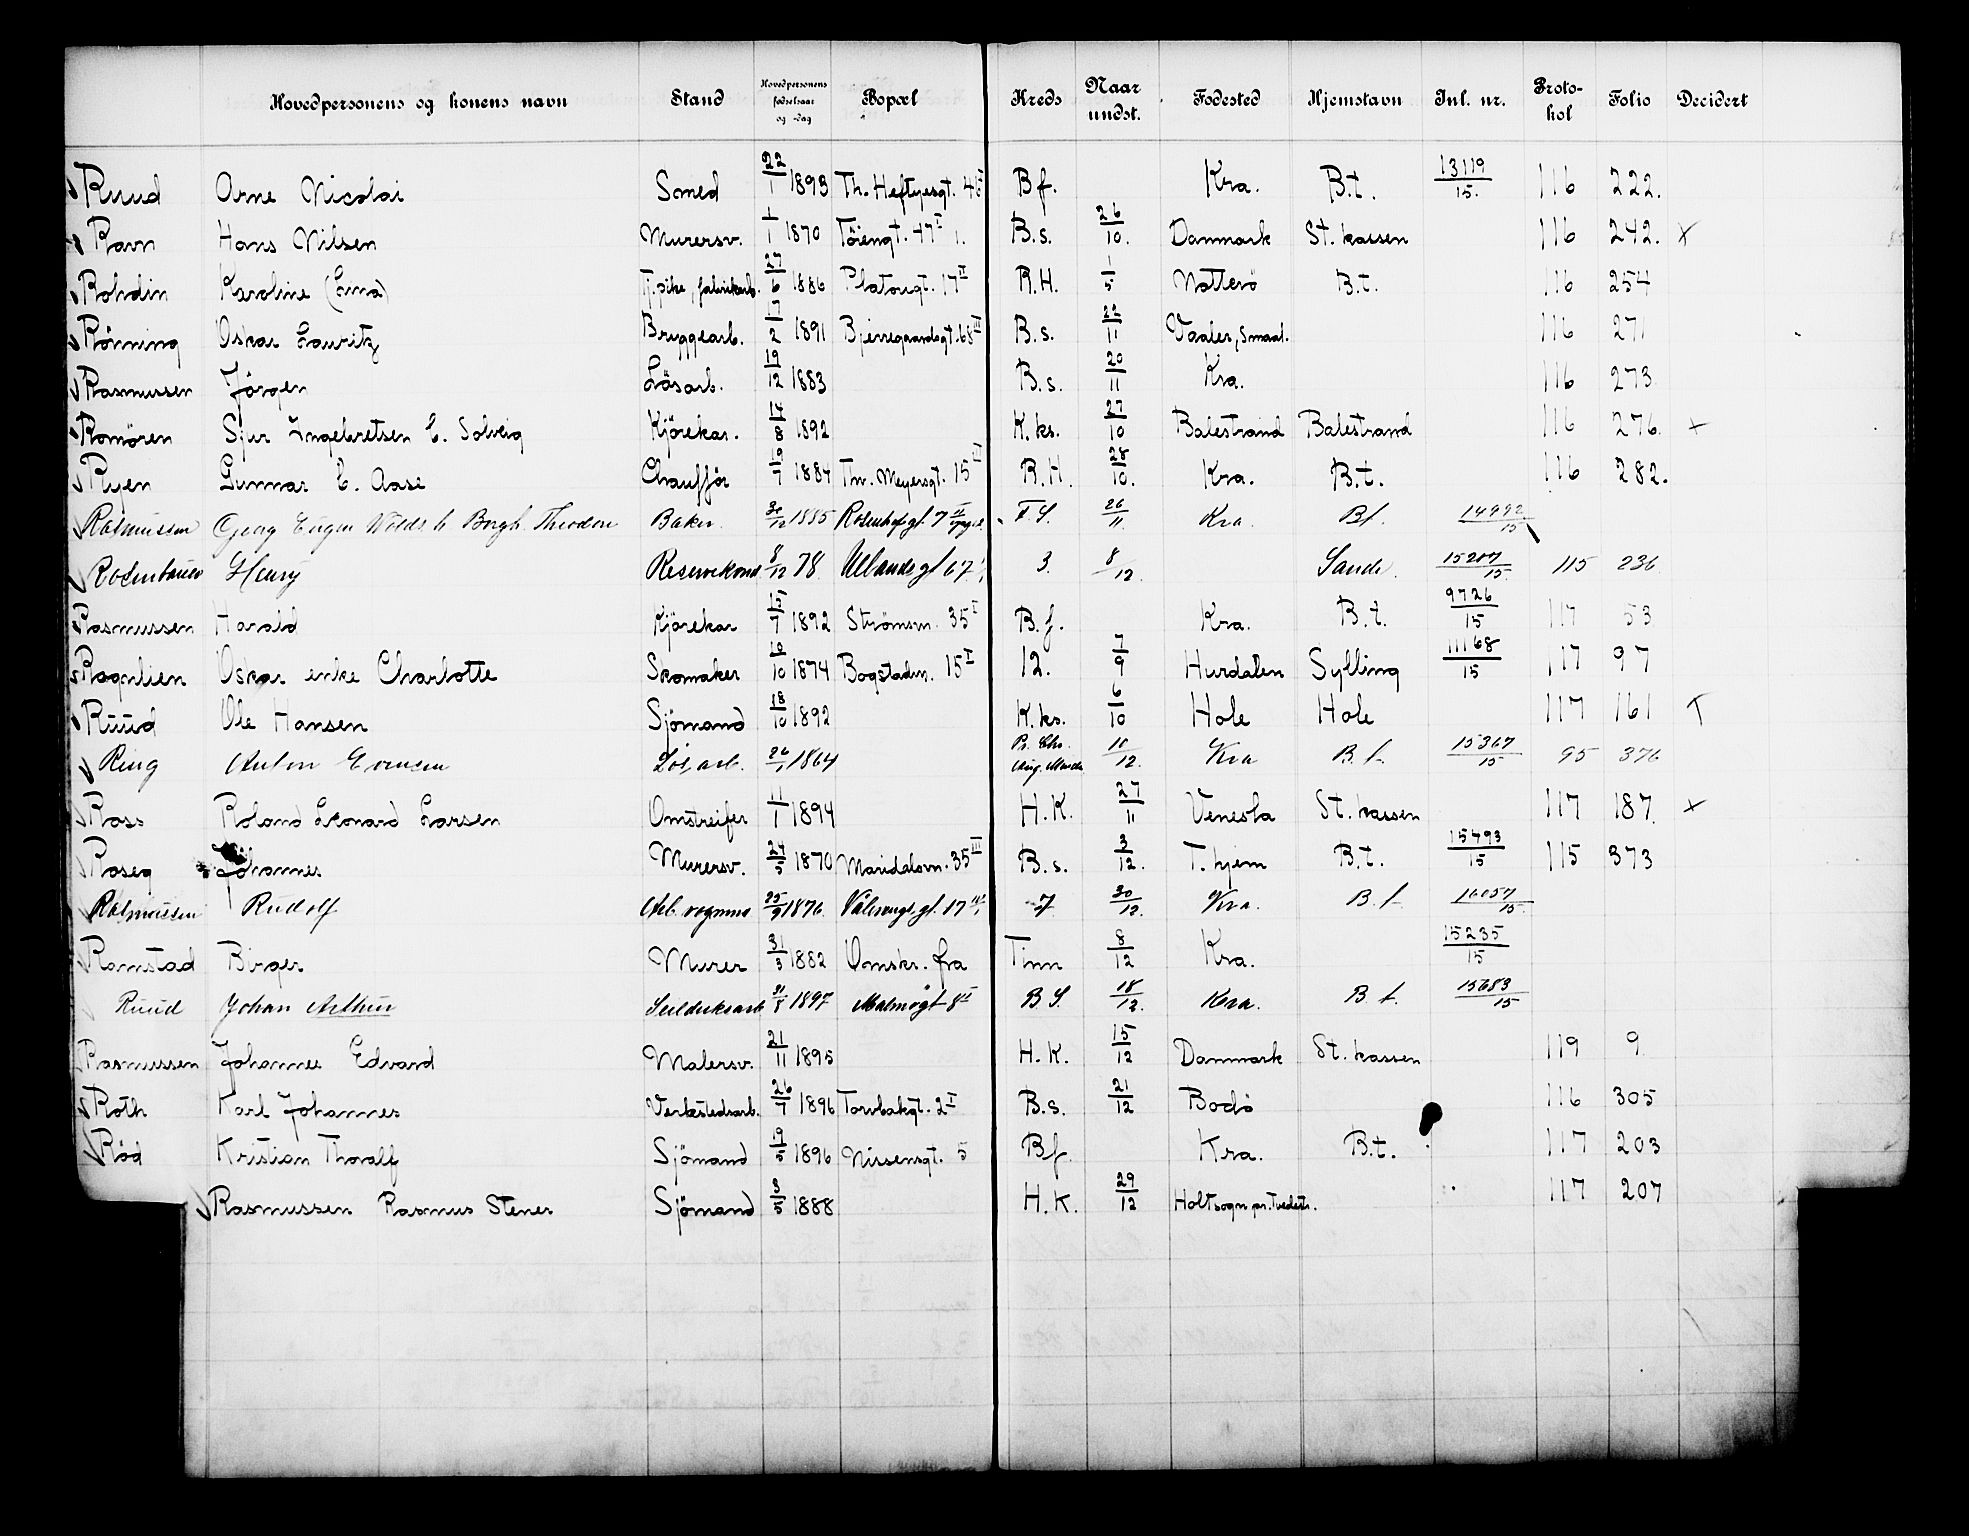 Hovedpersonens og konens navn Stand Hovedpersonens fødselsaar og -dag Bopæl Kreds Naar undst. Fødested Hjemstavn Inl. nr. Proto-kol Folio Decidert
Ruud Arne Nicolai Smed 22/1 1893 Th. Heftyesgt. 46 I B f. Kra. B.t. 13119/15. 116 222.
Ravn Hans Nilsen Murersv. 1/1 1870 Töiengt. 47 I 1. B.s. 26/10. Danmark St. kassen 116 242. X
Rohdin Karoline (Lina) F. pike, fabrikarb. 27/6 1886 Platougt. 17 II R.H. 1/5 Nötterö B.t. 116 254
Rönning Oskar Lauritz Bryggearb. 17/2 1891 Bjerregaardsgt. 68 III B.s. 22/11 Vaaler, Smaal. 116 271
Rasmussen Jörgen Lösarb. 19/12 1883 B.s. 20/11 Kra. 116 273
Romören Sjur Ingebretsen E. Solveig Kjörekar. 14/8 1892 K.ks. 27/10 Balestrand Balestrand 116 276. X
Ryen Gunnar E. Aase Chaufför 19/7 1884 Thv. Meyersgt. 15 III R.H. 28/10. Kra. B.t. 116 282.
Rasmussen Georg Eugen h. Borgh. Theodora Baker 30/12 1885 Rosenhofgt. 7 II F.S. 26/11. Kra. B t. 14992/15
Rosenbauer Henry Reservekond 8/12 78 Ullandsgt 67 3. 8/12. Sande. 15207/15 115 236
Rasmussen Harald Kjörekar 15/7 1892 Strömsv. 35 I B.f. Kra. B.t. 9726/15 117 53
Rognlien Oskar enke Charlotte Skomaker 10/10 1874 Bogstadvn. 15 I 12. 7/9 Hurdalen Sylling 11168/15 117 97
Ruud Ole Hansen Sjömand 18/10 1892 K.ks. 6/10 Hole Hole 117 161 T
Ring Anton Evensen Lösarb. 26/1 1864 Pr. Chr. Aug. Minde 10/12. Kra B.t. 15367/15 95 376
Ross Roland Leonard Larsen Omstreifer 11/1 1894 H.K. 27/11 Venesla St. kassen 117 187. X
Roseg Johannes Murersv. 24/5 1870 Maridalsvn. 35 III B.s. 3/12. T.hjem B.t. 15493/15 115 373
Rasmussen Rudolf Arb. vognm. 25/9 1876 Vålerengt. 17 7 30/12. Kra. B.t. 16057/15.
Ramstad Birger Murer 31/3 1882 Omskr. fra Tinn 8/12 Kra. 15235/15
Ruud Johan Arthur Seildukarb 31/8 1897 Malmögt 8 I B S. 18/12. Kra. B t. 15683/15
Rasmussen Johannes Edvard Malersv. 21/11 1895 H.K. 15/12 Danmark St. kassen 119 9.
Roth Karl Johannes Verkstedsarb. 26/7 1896 Torvbakgt. 2 I B.s. 21/12 Bodö 116 305
Röd Kristian Thoralf Sjömand 19/5 1896 Nissensgt. 5 Bf. Kra. B.t. 117 203
Rasmussen Rasmus Stener Sjömand 3/5 1888 H.K. 29/12 Holtsogn pr. Tvedestr. 117 207